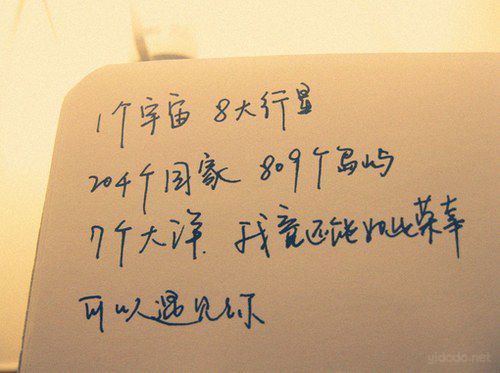 1个宇宙 8大行星
204个国家 809个岛屿
7个大洋.我竟还能如此荣幸
可以遇见你
yidodo.net